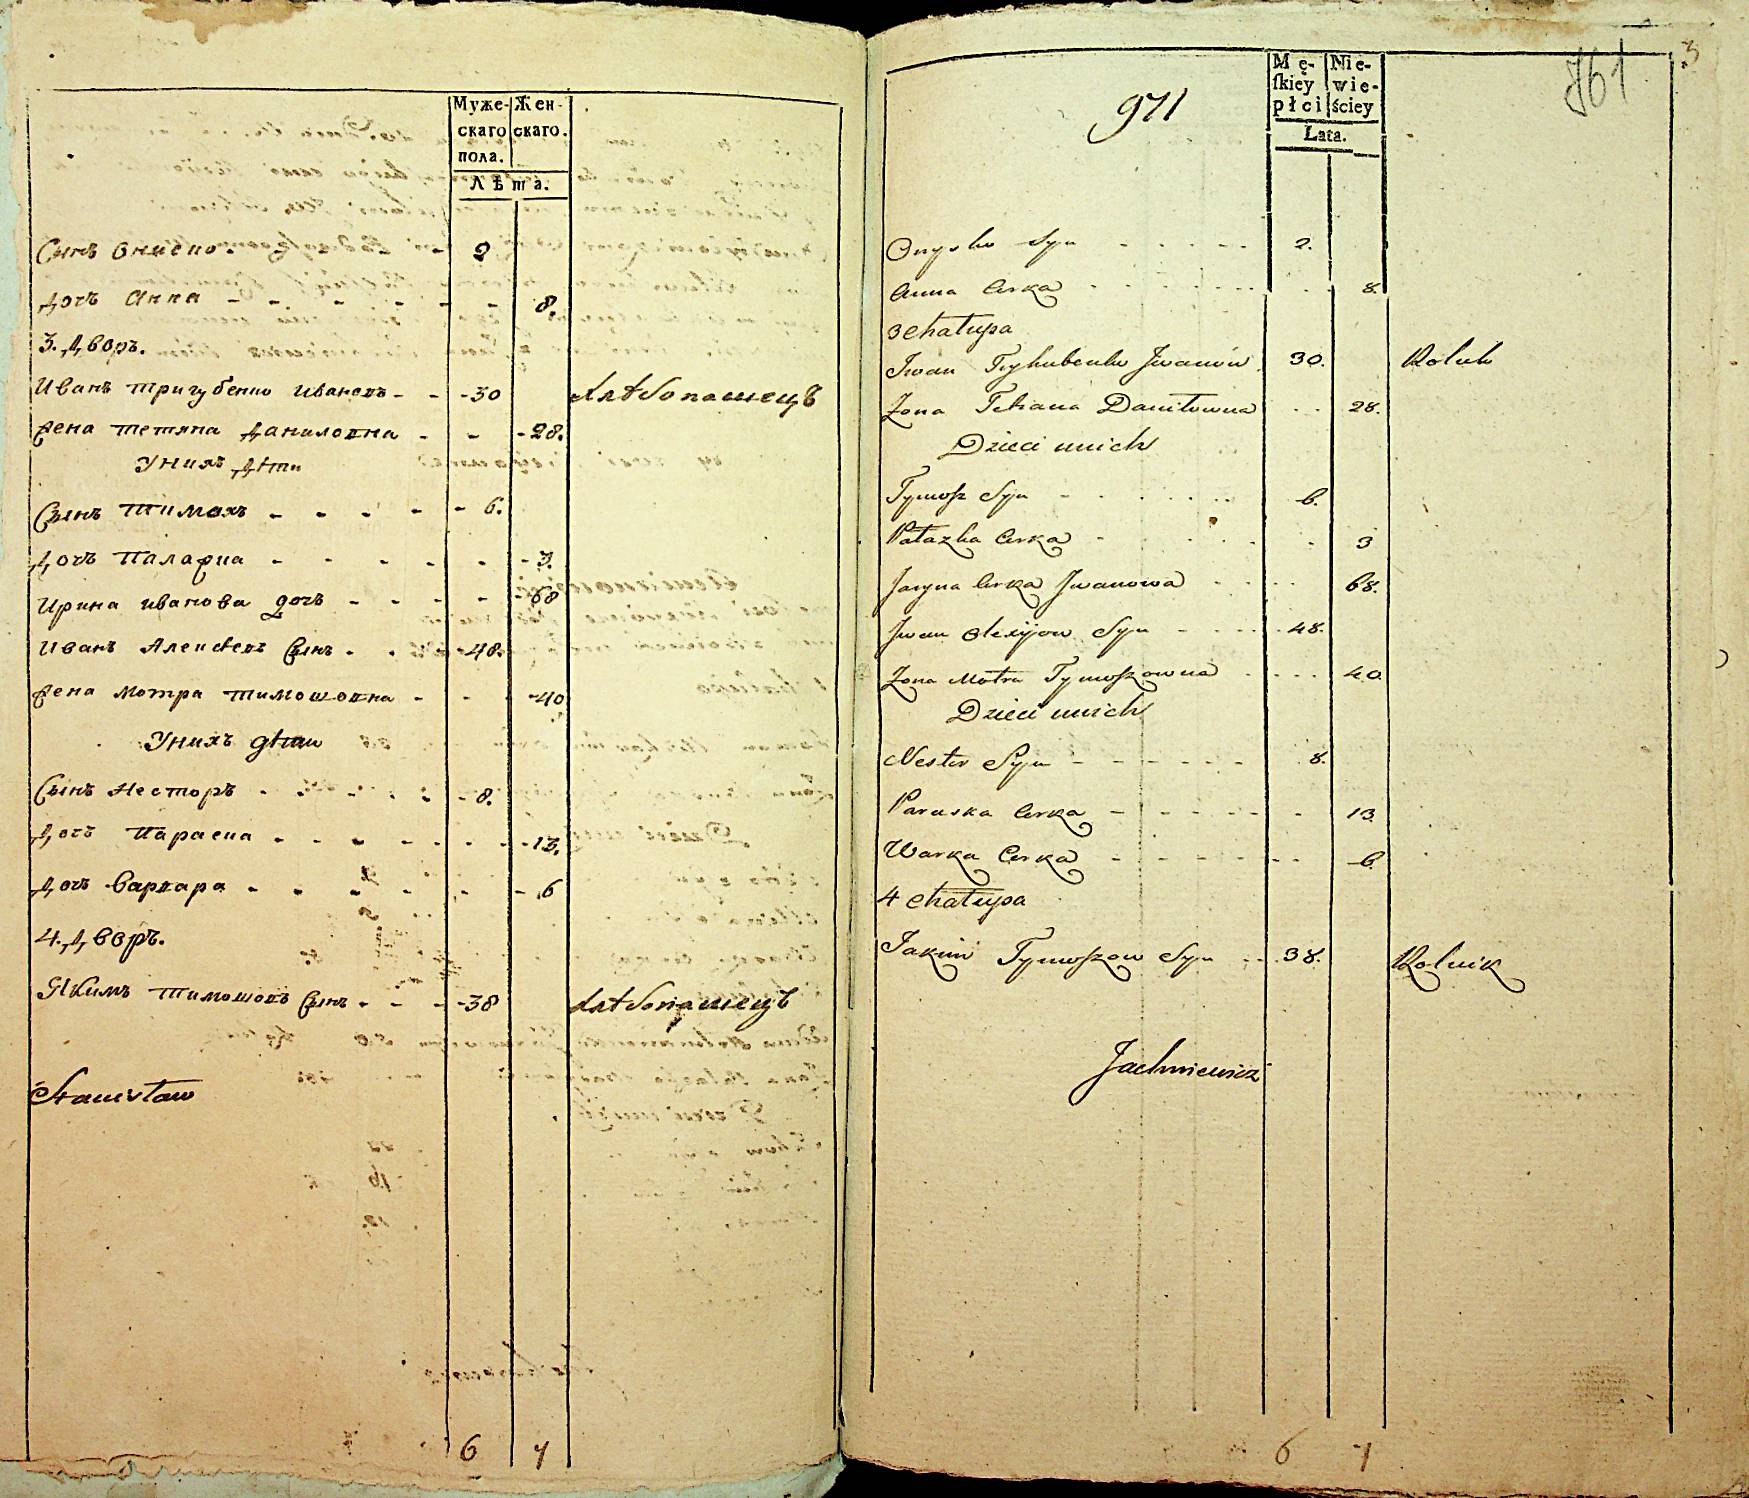 Муже- Жен-
скаго скаго.
пола.
Лѣта.
Сынъ Ониско - - - 2
Дочь Анна - - - - - - 8.
3. Дворъ.
Иванъ Тригубенко Ивановъ - - - 30 Хлѣбопашецъ
Жена Тетяна Даниловна - - - 28.
У нихъ дѣти
Сынъ Тимохъ - - - - - 6.
Дочь Палажка - - - - - - 3.
Ирина Иванова дочь - - - - - 68
Иванъ Алексѣевъ Сынъ - - - 48.
Жена Мотра Тимошовна - - - - 40
У нихъ дѣти
Сынъ Несторъ - - - - - - 8.
Дочь Параска - - - - - - - 13.
Дочь Варвара - - - - - - 6
4. Дворъ.
Якимъ Тимошовъ Сынъ - - - - 38 Хлѣбопашецъ
Stanisław
6 7
971
761
3
Mę- Nie-
skiey wie-
płci ściey
Lata.
Onysko Syn - - - - - 2.
Anna Corka - - - - - - - - 8.
3 chałupa
Iwan Tryhubenko Iwanow 30. Rolnik
Żona Tetiana Daniłowna - - 28.
Dzieci unich
Tymosz Syn - - - - - - 6.
Pałazka Corka - - - - - - 3
Jaryna Corka Iwanowa - - - - 68.
Iwan Olexijow Syn - - - - 48.
Żona Motra Tymoszowna - - - - 40.
Dzieci unich
Nestor Syn - - - - - - 8.
Paraska Corka - - - - - - 13
Warka Corka - - - - - - - 6
4 chałupa
Jakim Tymoszow Syn - - 38. Rolnik
Jachniewicz
6 7